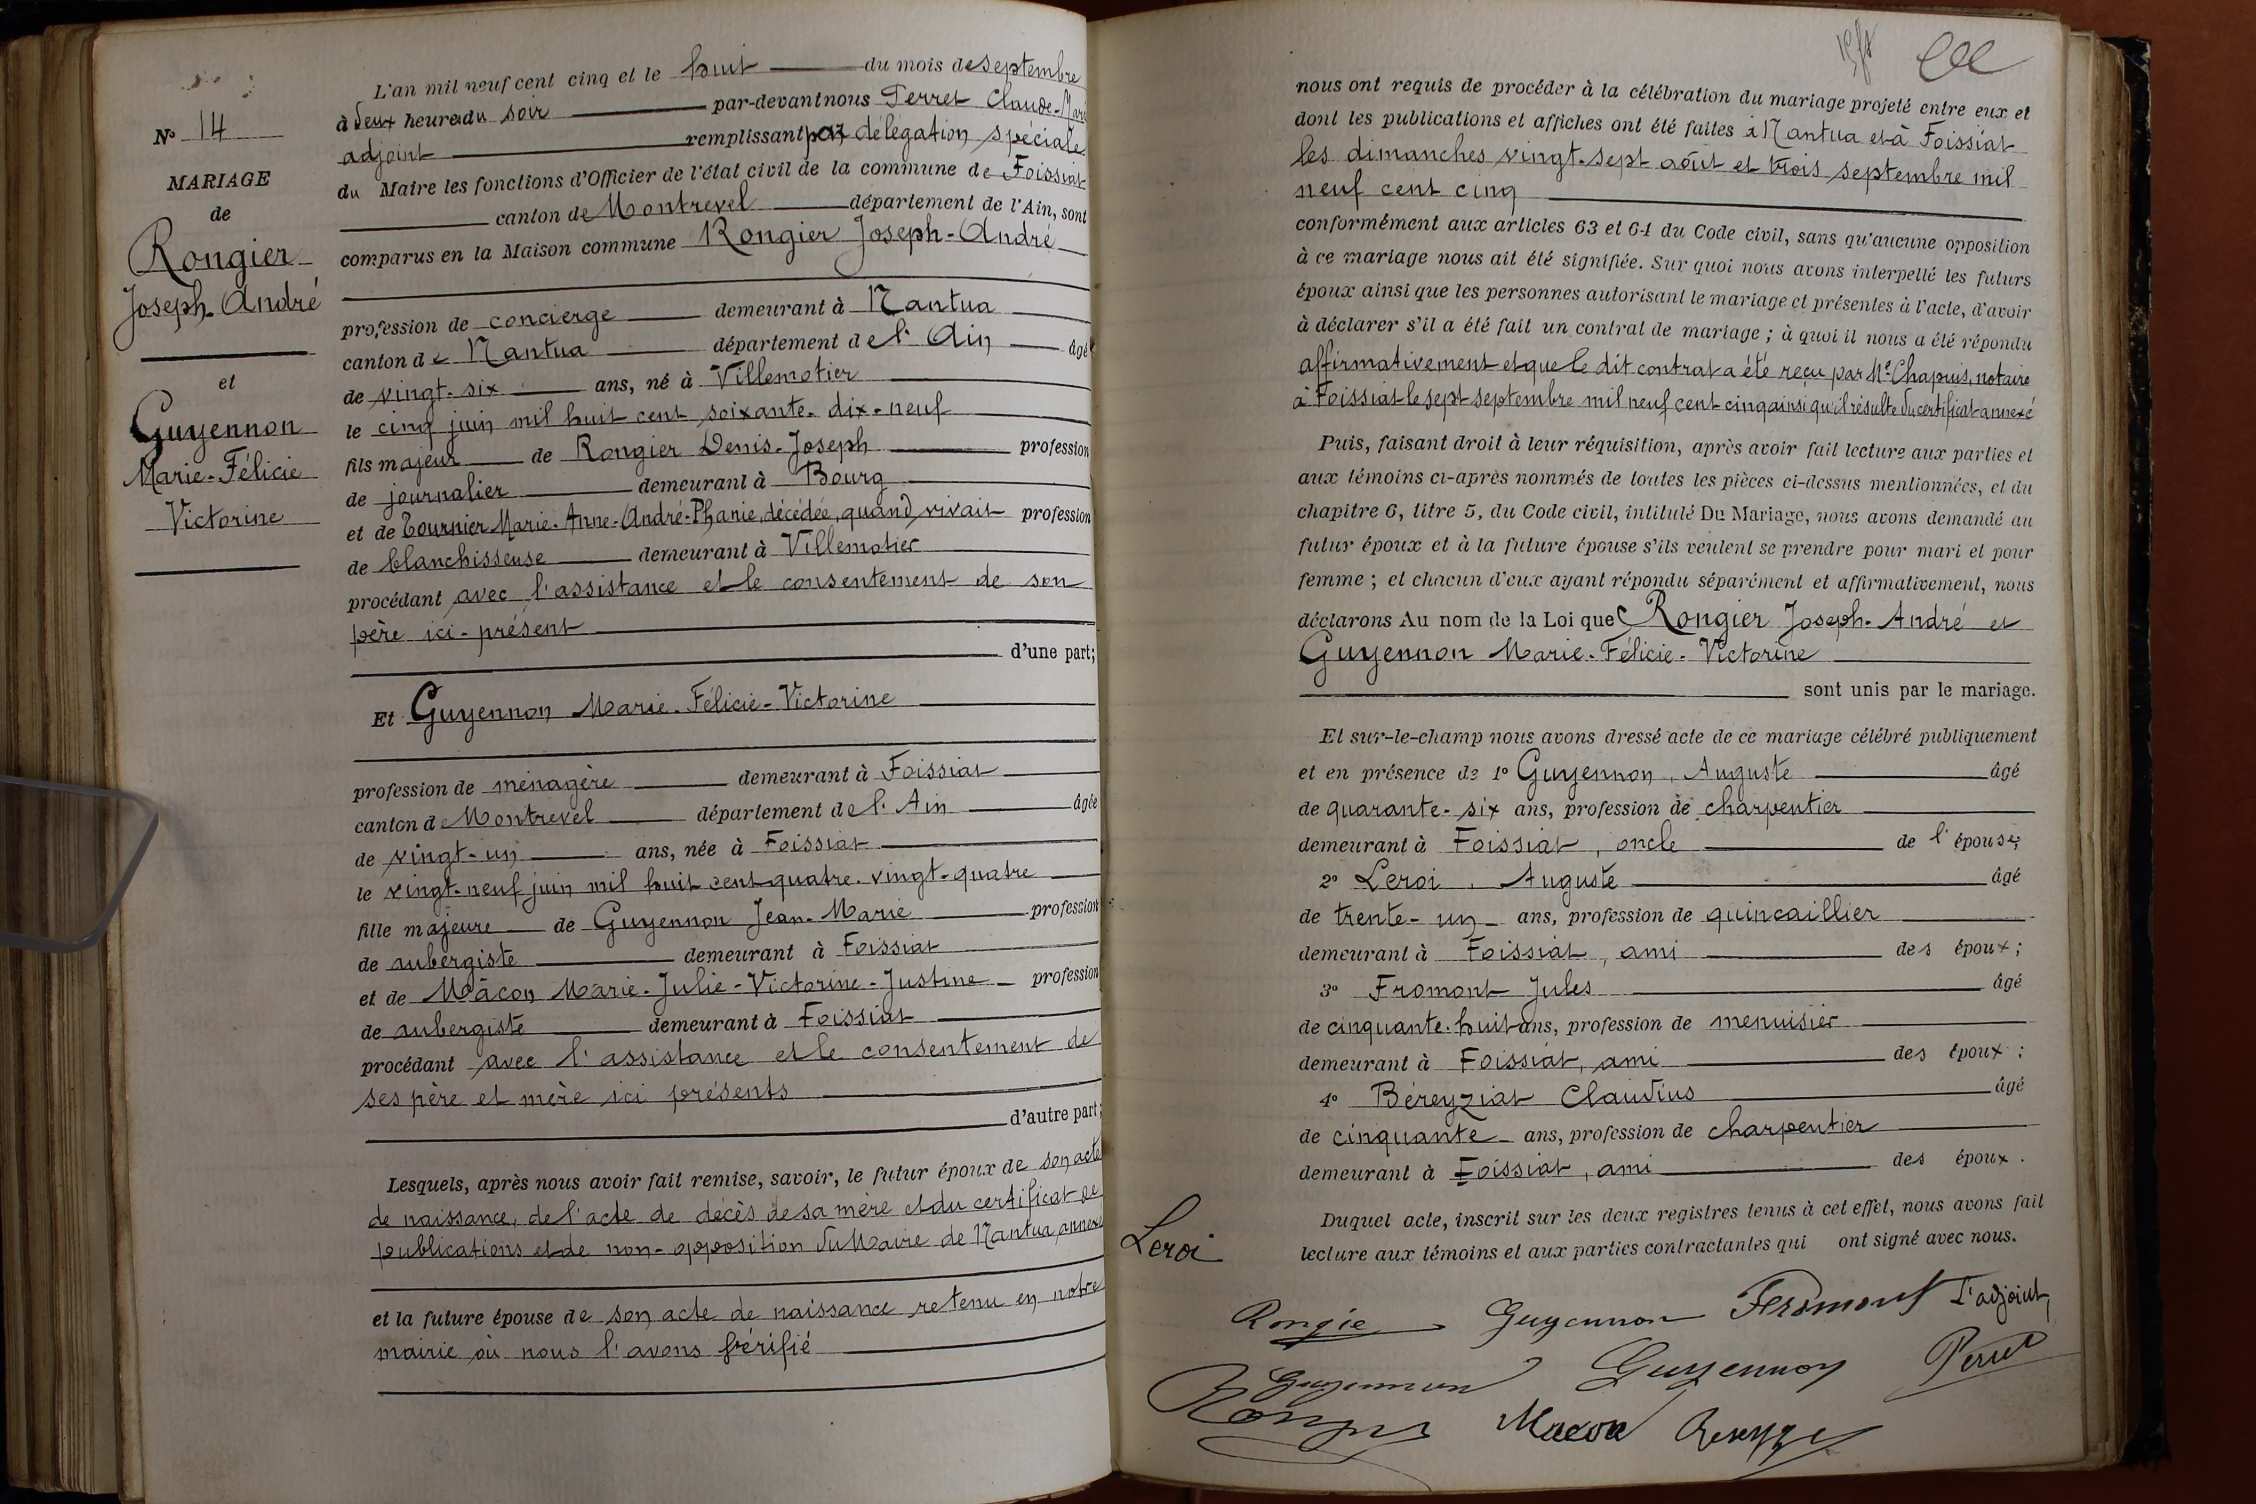 N° 14
MARIAGE
de
Rongier
Joseph-André
et
Guyennon
Marie-Félicie
Victorine
L'an mil neuf cent cinq et le huit du mois de septembre
à deux heures du soir par-devant nous Perret Claude-Marie
adjoint remplissant par délégation spéciale
du Maire les fonctions d'Officier de l'état civil de la commune de Foissiat
canton de Montrevel département de l'Ain, sont
comparus en la Maison commune Rongier Joseph-André
profession de concierge demeurant à Nantua
canton de Nantua département de l'Ain âgé
de vingt-six ans, né à Villemotier
le cinq juin mil huit cent soixante-dix-neuf
fils majeur de Rongier Denis-Joseph profession
de journalier demeurant à Bourg
et de Tournier Marie-Anne-André-Phanie, décédée, quand vivait profession
de blanchisseuse demeurant à Villemotier
procédant avec l'assistance et le consentement de son
père ici-présent
d'une part;
Et Guyennon Marie-Félicie-Victorine
profession de ménagère demeurant à Foissiat
canton de Montrevel département de l'Ain âgée
de vingt-un ans, née à Foissiat
le vingt-neuf juin mil huit cent quatre-vingt-quatre
fille majeure de Guyennon Jean-Marie profession
de aubergiste demeurant à Foissiat
et de Mâcon Marie-Julie-Victorine-Justine profession
de aubergiste demeurant à Foissiat
procédant avec l'assistance et le consentement de
ses père et mère ici présents
d'autre part;
Lesquels, après nous avoir fait remise, savoir, le futur époux de son acte
de naissance, de l'acte de décès de sa mère et du certificat de
publications et de non-opposition du Maire de Nantua, annexé
et la future épouse de son acte de naissance retenu en notre
mairie où nous l'avons vérifié
nous ont requis de procéder à la célébration du mariage projeté entre eux et
dont les publications et affiches ont été faites à Nantua et à Foissiat
les dimanches vingt-sept août et trois septembre mil
neuf cent cinq
conformément aux articles 63 et 64 du Code civil, sans qu'aucune opposition
à ce mariage nous ait été signifiée. Sur quoi nous avons interpellé les futurs
époux ainsi que les personnes autorisant le mariage et présentes à l'acte, d'avoir
à déclarer s'il a été fait un contrat de mariage; à quoi il nous a été répondu
affirmativement et que le dit contrat a été reçu par Me Chapuis, notaire
à Foissiat le sept septembre mil neuf cent cinq ainsi qu'il résulte du certificat annexé
Puis, faisant droit à leur réquisition, après avoir fait lecture aux parties et
aux témoins ci-après nommés de toutes les pièces ci-dessus mentionnées, et du
chapitre 6, titre 5, du Code civil, intitulé Du Mariage, nous avons demandé au
futur époux et à la future épouse s'ils veulent se prendre pour mari et pour
femme; et chacun d'eux ayant répondu séparément et affirmativement, nous
déclarons Au nom de la Loi que Rongier Joseph-André et
Guyennon Marie-Félicie-Victorine
sont unis par le mariage.
Et sur-le-champ nous avons dressé acte de ce mariage célébré publiquement
et en présence de 1° Guyennon, Auguste âgé
de quarante-six ans, profession de charpentier
demeurant à Foissiat, oncle de l'épouse;
2° Leroi, Auguste âgé
de trente-un ans, profession de quincaillier
demeurant à Foissiat, ami des époux;
3° Fromont Jules âgé
de cinquante-huit ans, profession de menuisier
demeurant à Foissiat, ami des époux;
4° Béreyziat Claudius âgé
de cinquante ans, profession de charpentier
demeurant à Foissiat, ami des époux.
Duquel acte, inscrit sur les deux registres tenus à cet effet, nous avons fait
lecture aux témoins et aux parties contractantes qui ont signé avec nous.
Leroi
Rongie Guyennon Fromont L'adjoint,
Guyennon Guyennon Perret
Macon